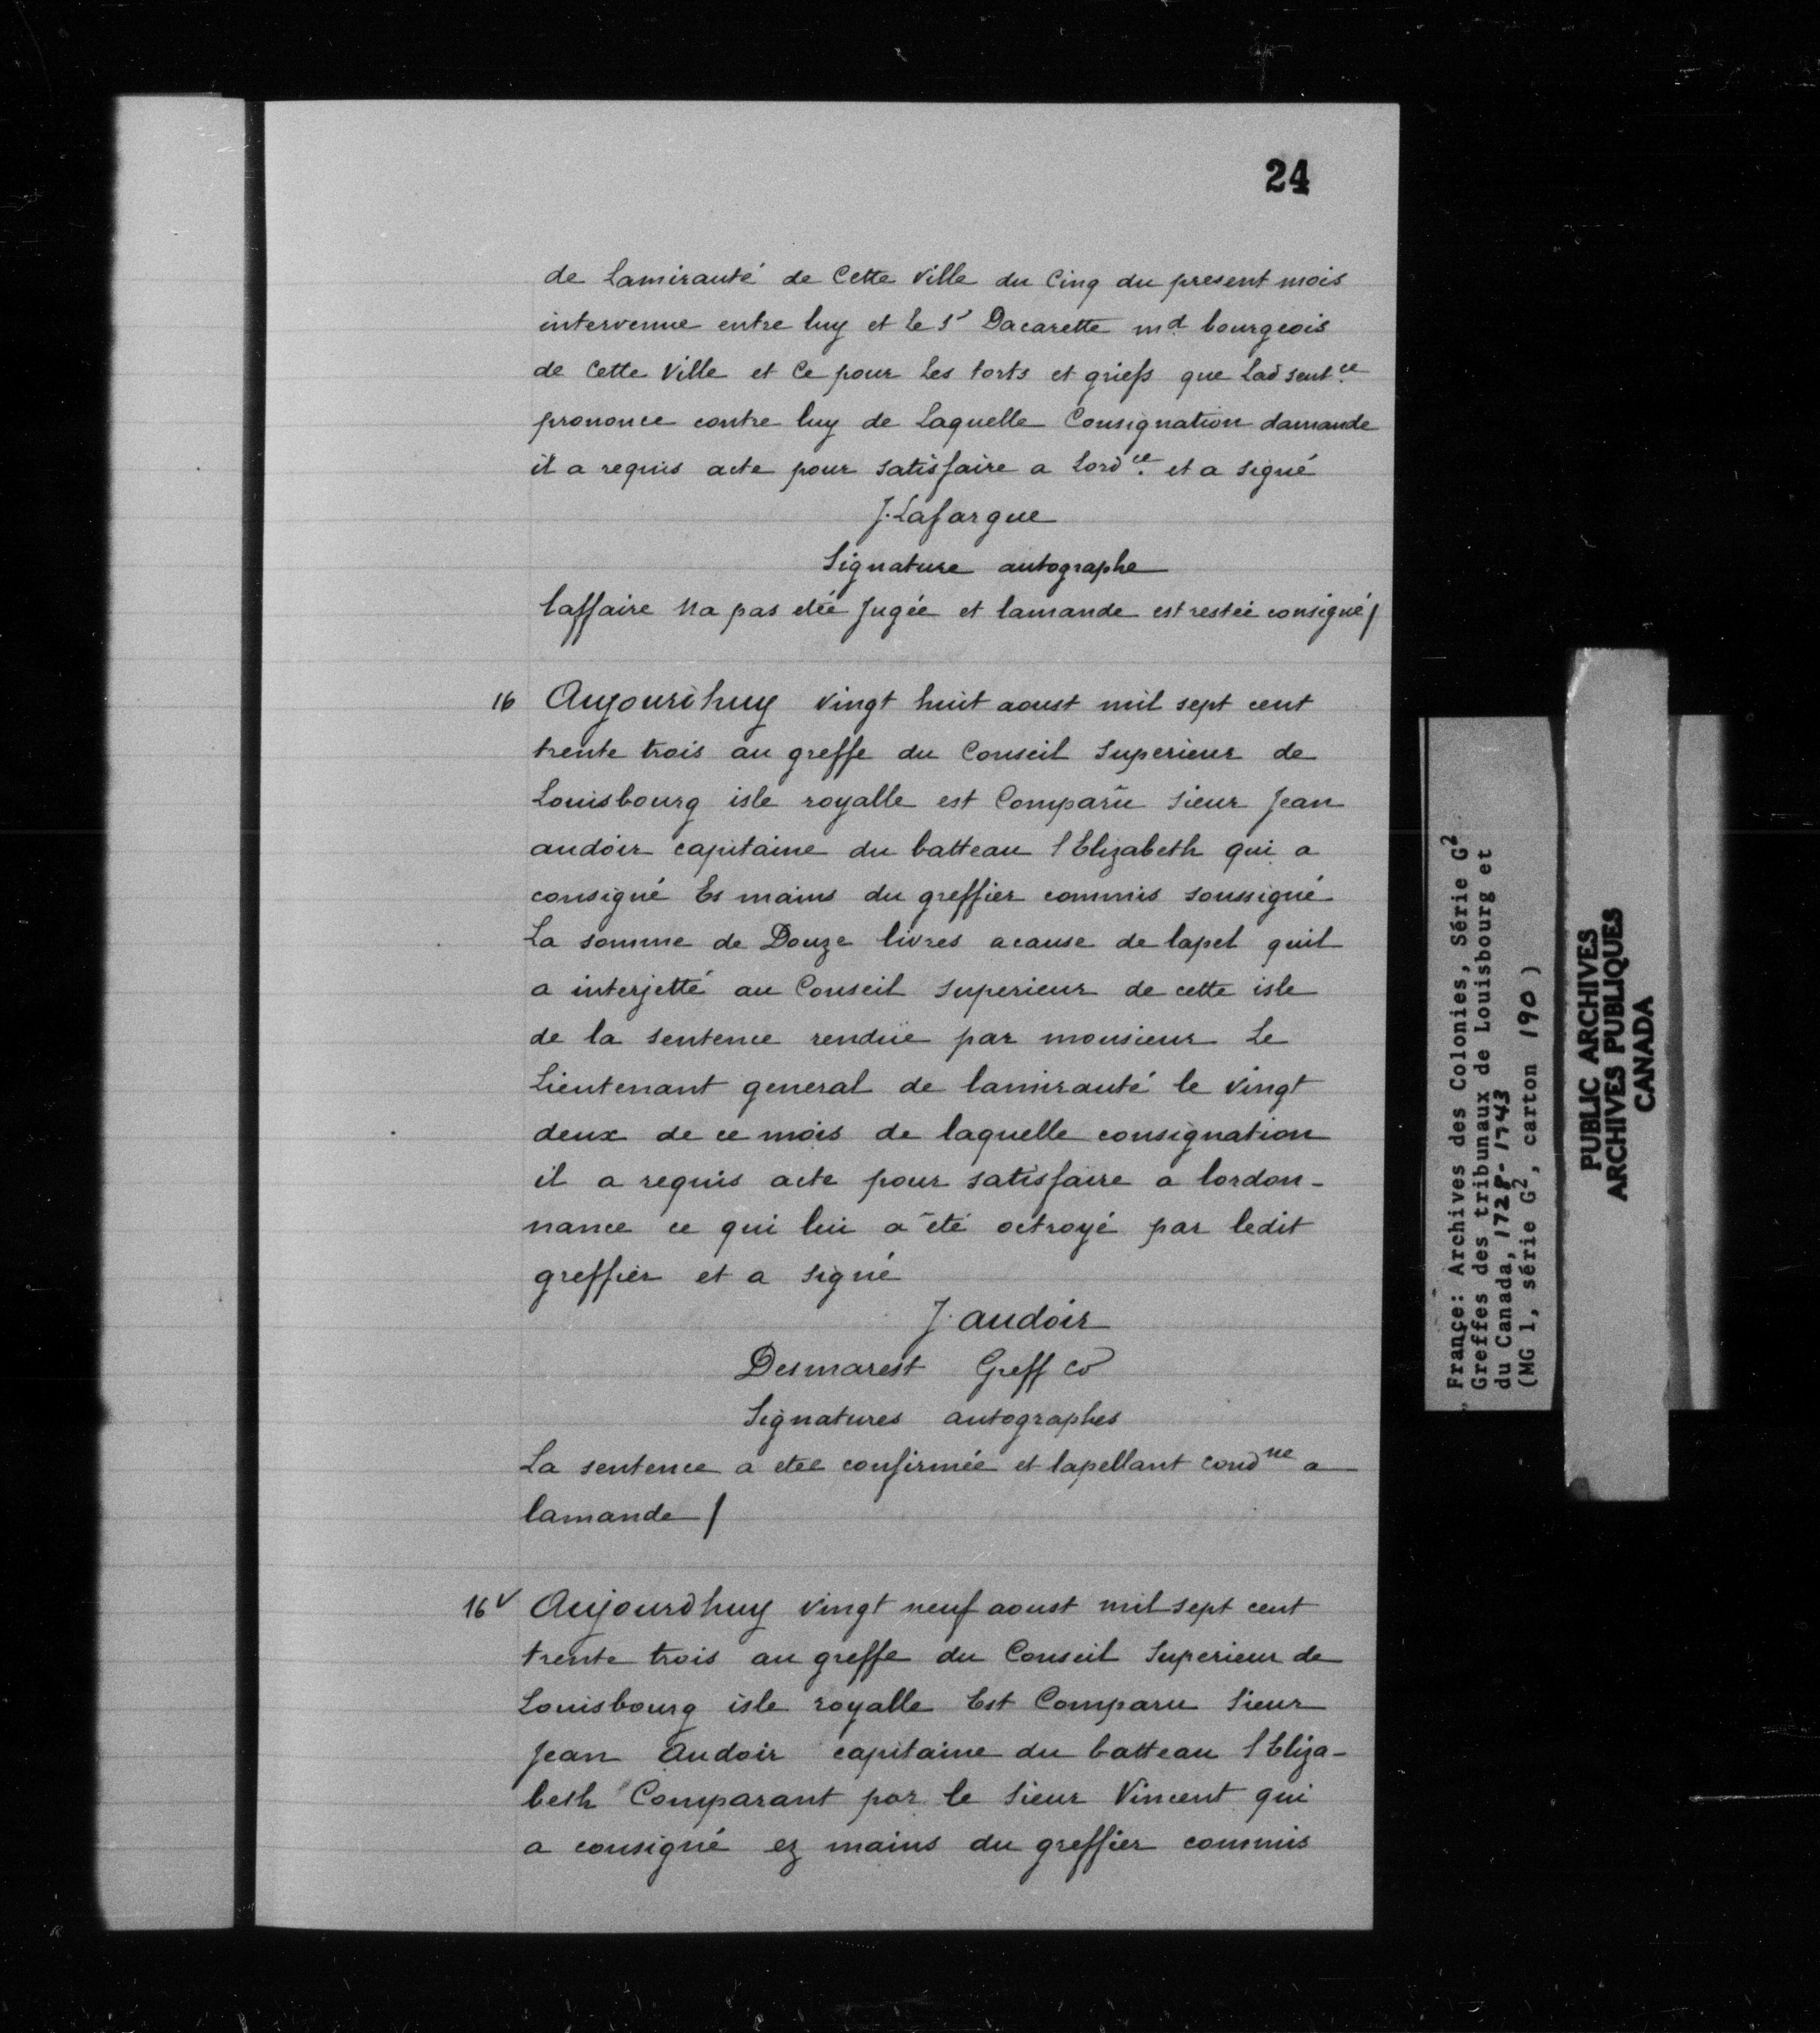 24
de Lamirauté de Cette Ville du Cinq du present mois
intervenue entre luy et le Sr Dacarette md. bourgeois
de Cette Ville et Ce pour les torts et griefs que Lad sentce.
prononce contre luy de Laquelle Consignation damande
il a requis acte pour satisfaire a Lordce. et a signé
J. Lafargue
Signature autographe
laffaire Na pas étée Jugée et lamande est restée consigné/
16 Aujourdhuy vingt huit aoust mil sept cent
trente trois au greffe du Conseil Superieur de
Louisbourg isle royalle est Comparu Sieur Jean
audoir capitaine du batteau l Elizabeth qui a
consigné Es mains du greffier commis soussigné
La somme de Douze livres acause de lapel quil
a interjetté au Conseil superieur de cette isle
de la sentence rendüe par monsieur Le
Lieutenant general de lamirauté le vingt
deux de ce mois de laquelle consignation
il a requis acte pour satisfaire a lordon-
nance ce qui lui a été octroyé par ledit
greffier et a signé
J. audoir
Desmarest Greff co
Signatures autographes
La sentence a etée confirmée et lapellant condne a
lamande /
16v Aujourdhuy vingt neuf aoust mil sept cent
trente trois au greffe du Conseil Superieur de
Louisbourg isle royalle Est Comparu Sieur
Jean Audoir capitaine du batteau l Eliza-
beth Comparant par le Sieur Vincent qui
a consigné ez mains du greffier commis
France: Archives des Colonies, Série G2
Greffes des tribunaux de Louisbourg et
du Canada, 1728-1743
(MG 1, série G2, carton 190)
PUBLIC ARCHIVES
ARCHIVES PUBLIQUES
CANADA